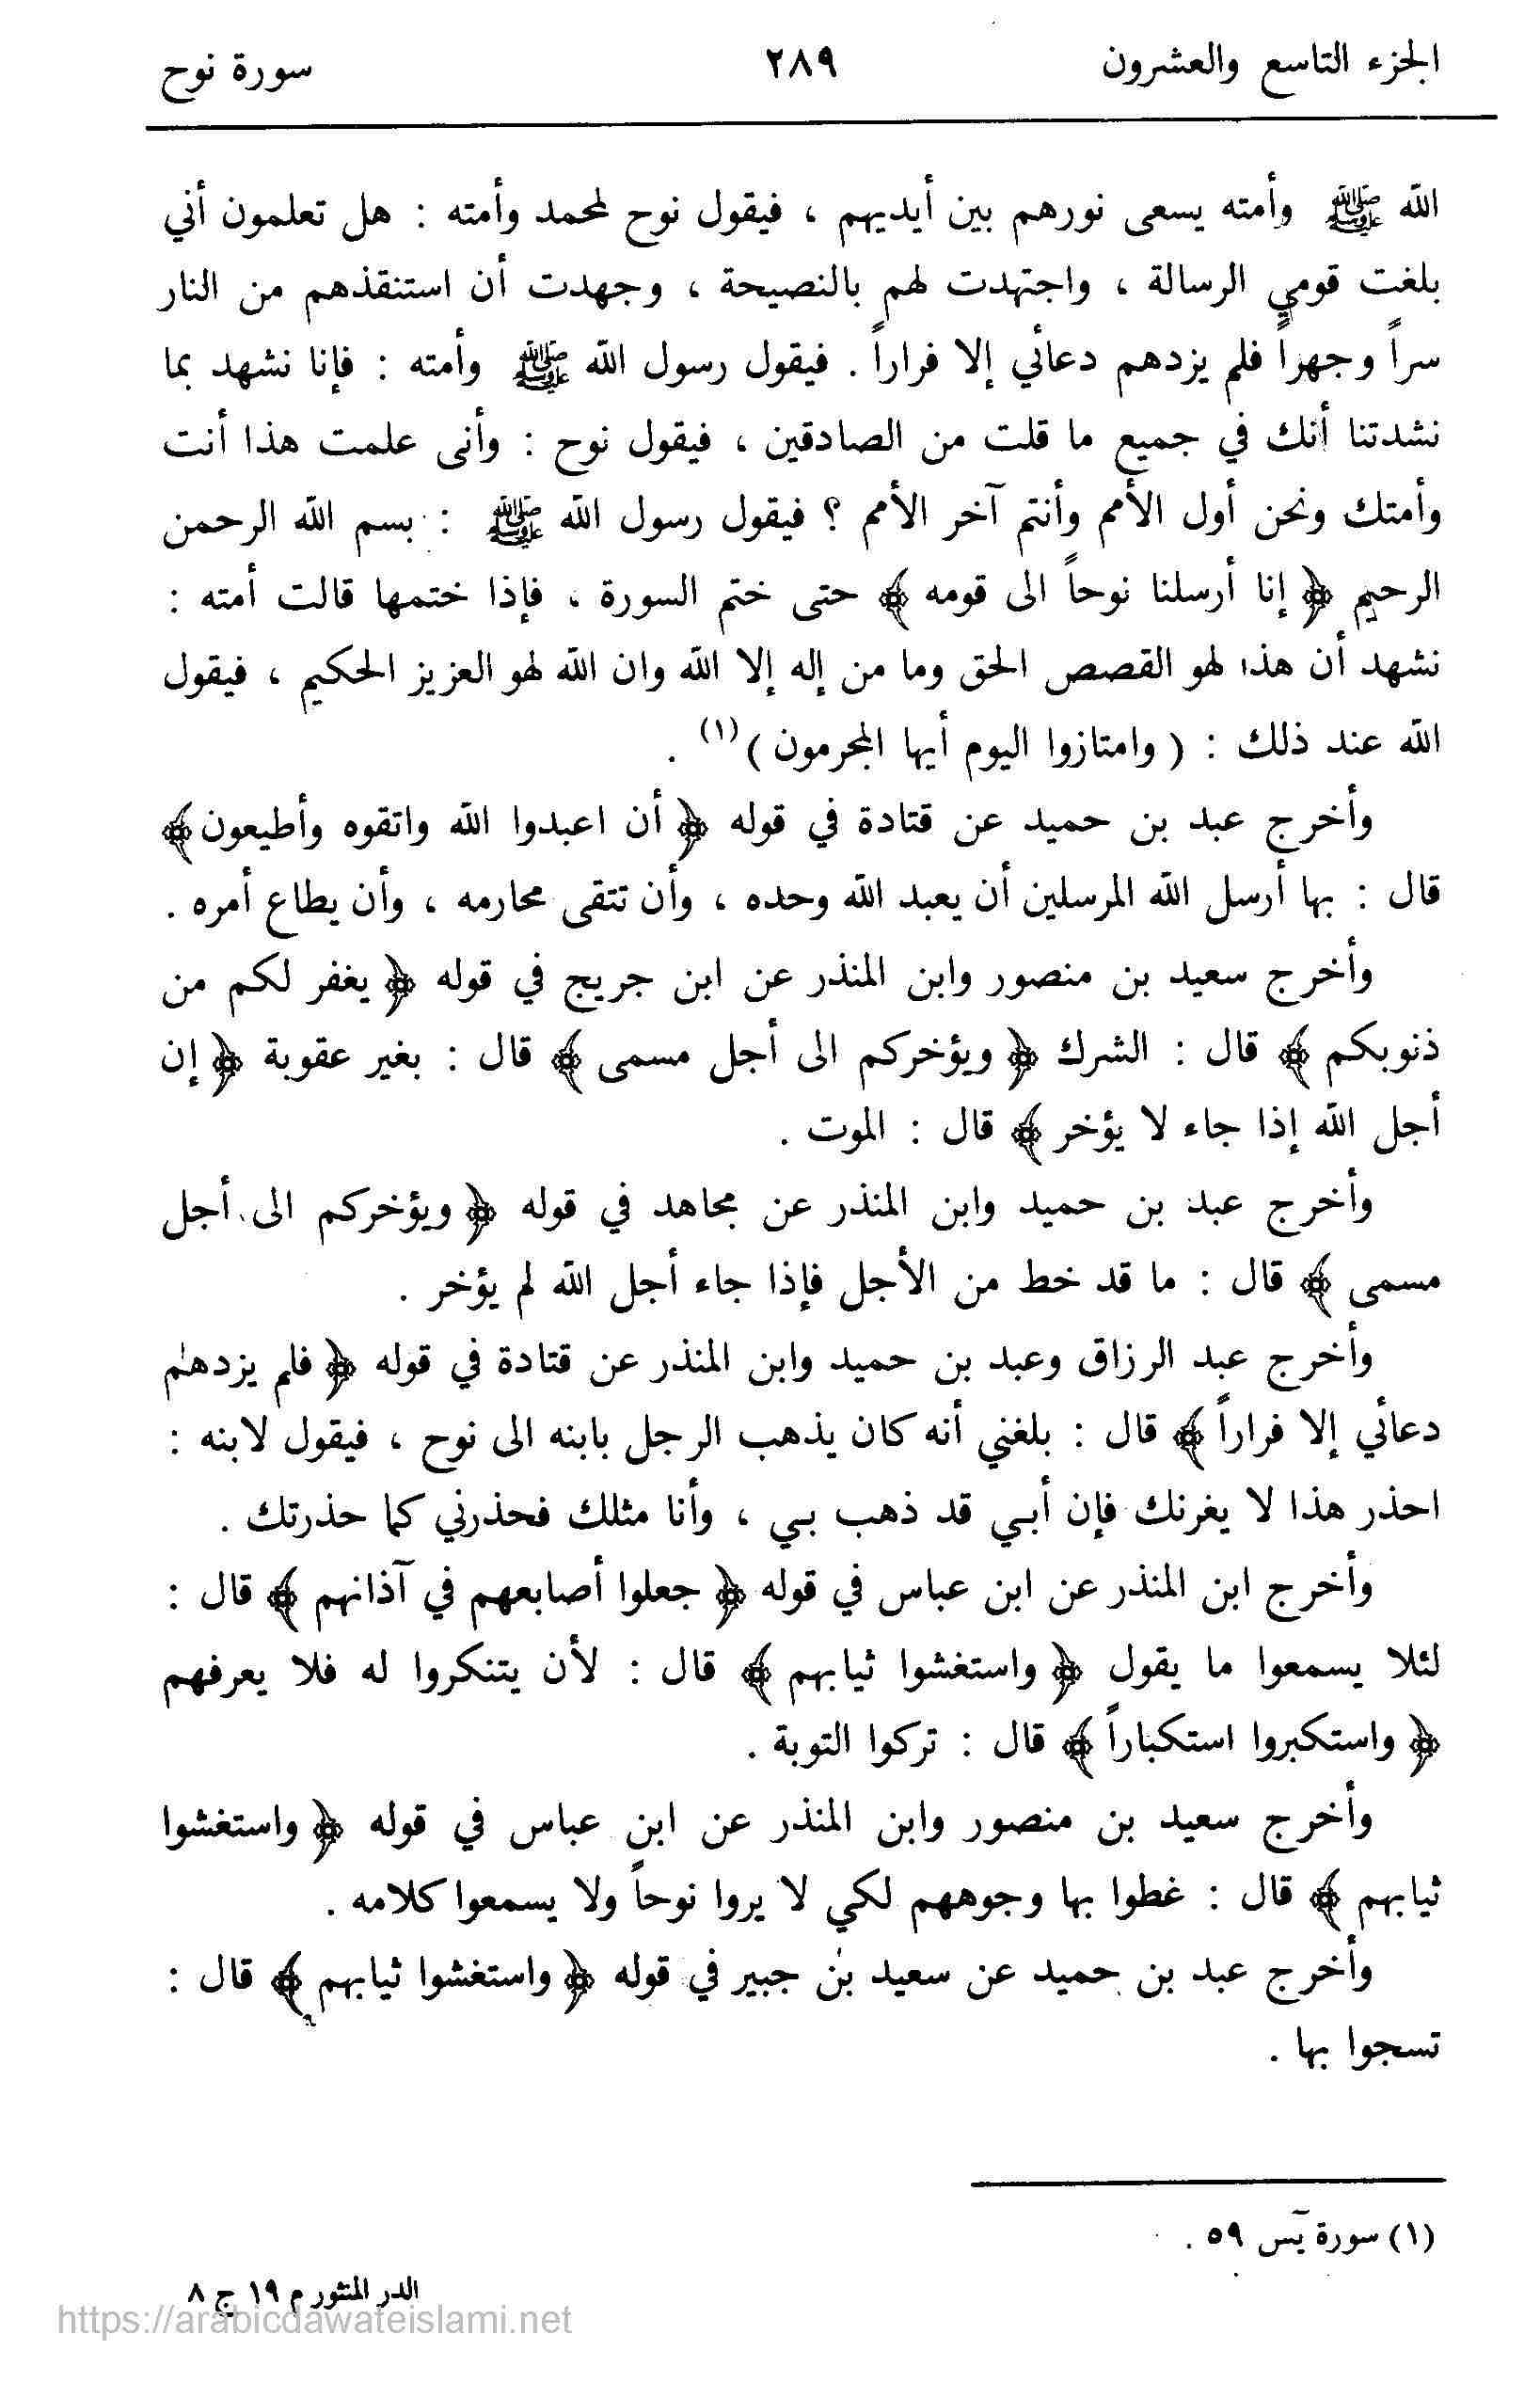 الجزء التاسع والعشرون ٢٨٩ سورة نوح
الله ﷺ وأمته يسعى نورهم بين أيديهم ، فيقول نوح لمحمد وأمته : هل تعلمون أني
بلغت قومي الرسالة ، واجتهدت لهم بالنصيحة ، وجهدت أن استنقذهم من النار
سراً وجهراً فلم يزدهم دعائي إلا فراراً . فيقول رسول الله ﷺ وأمته : فإنا نشهد بما
نشدتنا أنك في جميع ما قلت من الصادقين ، فيقول نوح : وأنى علمت هذا أنت
وأمتك ونحن أول الأمم وأنتم آخر الأمم ؟ فيقول رسول الله ﷺ : بسم الله الرحمن
الرحيم ﴿ إنا أرسلنا نوحاً الى قومه ﴾ حتى ختم السورة ، فإذا ختمها قالت أمته :
نشهد أن هذا لهو القصص الحق وما من إله إلا الله وان الله لهو العزيز الحكيم ، فيقول
الله عند ذلك : ( وامتازوا اليوم أيها المجرمون )(١) .
وأخرج عبد بن حميد عن قتادة في قوله ﴿ أن اعبدوا الله واتقوه وأطيعون﴾
قال : بها أرسل الله المرسلين أن يعبد الله وحده ، وأن تتقى محارمه ، وأن يطاع أمره .
وأخرج سعيد بن منصور وابن المنذر عن ابن جريج في قوله ﴿ يغفر لكم من
ذنوبكم ﴾ قال : الشرك ﴿ ويؤخركم الى أجل مسمى ﴾ قال : بغير عقوبة ﴿ إن
أجل الله إذا جاء لا يؤخر ﴾ قال : الموت .
وأخرج عبد بن حميد وابن المنذر عن مجاهد في قوله ﴿ ويؤخركم الى أجل
مسمى ﴾ قال : ما قد خط من الأجل فإذا جاء أجل الله لم يؤخر .
وأخرج عبد الرزاق وعبد بن حميد وابن المنذر عن قتادة في قوله ﴿ فلم يزدهم
دعائي إلا فراراً ﴾ قال : بلغني أنه كان يذهب الرجل بابنه الى نوح ، فيقول لابنه :
احذر هذا لا يغرنك فإن أبي قد ذهب بي ، وأنا مثلك فحذرني كما حذرتك .
وأخرج ابن المنذر عن ابن عباس في قوله ﴿ جعلوا أصابعهم في آذانهم ﴾ قال :
لئلا يسمعوا ما يقول ﴿ واستغشوا ثيابهم ﴾ قال : لأن يتنكروا له فلا يعرفهم
﴿ واستكبروا استكباراً ﴾ قال : تركوا التوبة .
وأخرج سعيد بن منصور وابن المنذر عن ابن عباس في قوله ﴿ واستغشوا
ثيابهم ﴾ قال : غطوا بها وجوههم لكي لا يروا نوحاً ولا يسمعوا كلامه .
وأخرج عبد بن حميد عن سعيد بن جبير في قوله ﴿ واستغشوا ثيابهم ﴾ قال :
تسجوا بها .
(١) سورة يٓس ٥٩ .
الدر المنثور م ١٩ ج ٨
https://arabicdawateislami.net